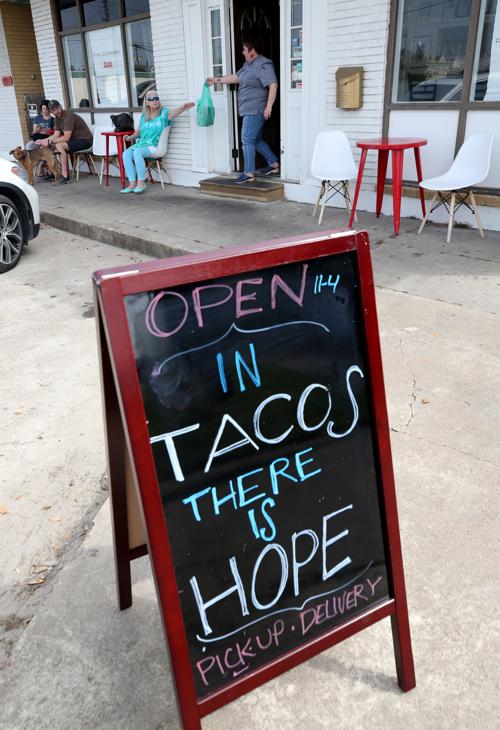 OPEN 11-4
IN
TACOS
THERE
IS
HOPE
PICK-UP · DELIVERY